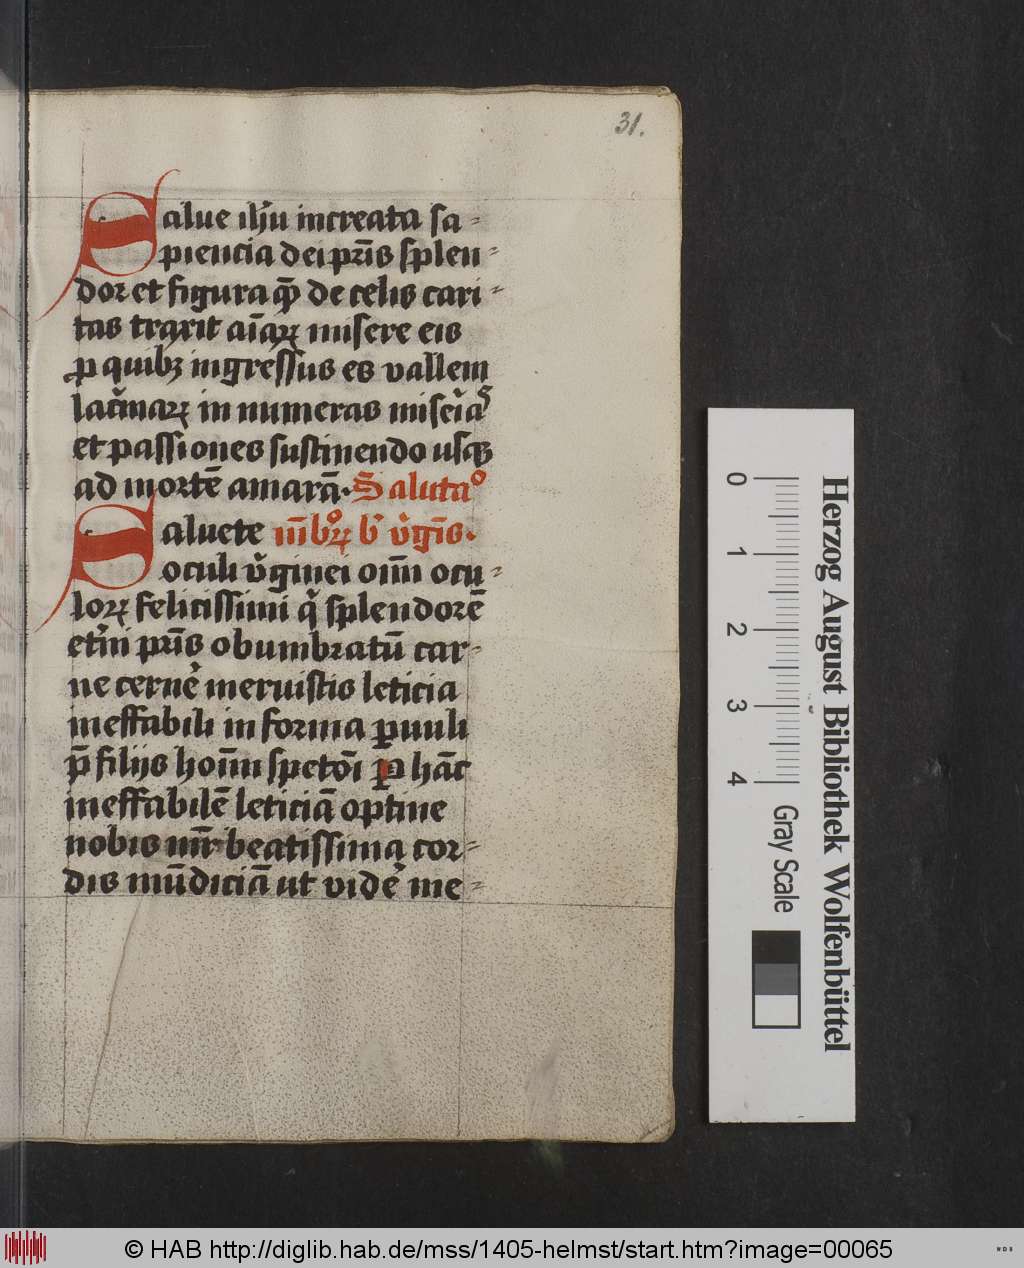 31.
Salue ih̄u increata sa-
piencia dei pr̄is splen-
dor et figura q̄ de celis cari-
tas traxit aīaꝝ misere eis
ꝓ quibꝫ ingressus es vallem
lac̄maꝝ in numeras misc̄ias
et passiones sustinendo usqꝫ
ad mortē amarā. Salutaᵒ
Saluete mēbroꝝ b̄ v̓gīs.
oculi v̓ginei oīm ocu-
loꝝ felicissimi q̓ splendorē
et̓ni pr̄is obumbratū car-
ne cerne̓ meruistis leticia
ineffabili in forma ꝑuuli
p̄ filijs hoīm spetōi ꝑ hāc
ineffabilē leticiā optine
nobis mr̄ beatissima cor-
dis mūdiciā ut vide̓ me-
0 1 2 3 4 Gray Scale
Herzog August Bibliothek Wolfenbüttel
© HAB http://diglib.hab.de/mss/1405-helmst/start.htm?image=00065